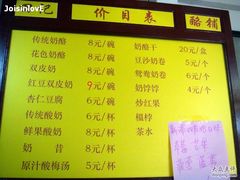 Joisinlove
记 价目表 酪铺
传统奶酪 8元/碗
花色奶酪 8元/碗
双皮奶 8元/碗
红豆双皮奶 9元/碗
杏仁豆腐 6元/碗
传统酸奶 6元/杯
鲜果酸奶 8元/杯
奶昔 8元/杯
原汁酸梅汤 5元/杯
奶酪干 20元/盒
豆沙奶卷 5元/个
鸳鸯奶卷 6元/个
奶饽饽 4元/个
炒红果
榅桲
茶水